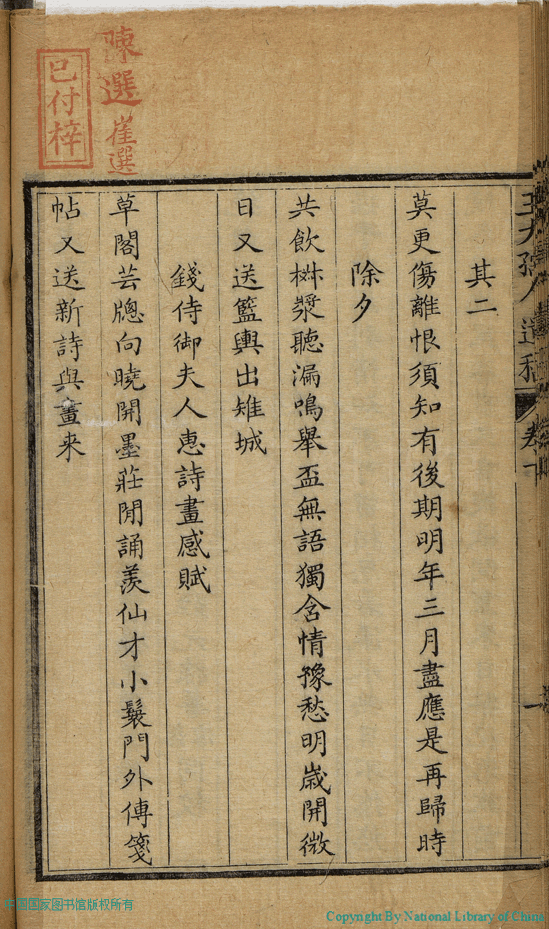 其二
莫更傷離恨須知有後期明年三月盡應是再歸時
除夕
共飲椒漿聽漏鳴舉盃無語獨含情豫愁明歲開微
日又送籃輿出雉城
錢侍御夫人惠詩畫感賦
草閣芸牕向曉開墨莊閒誦羨仙才小鬟門外傳箋
帖又送新詩與畫来
陳選
崔選
已付梓
中国国家图书馆版权所有
Copyright By National Library of China